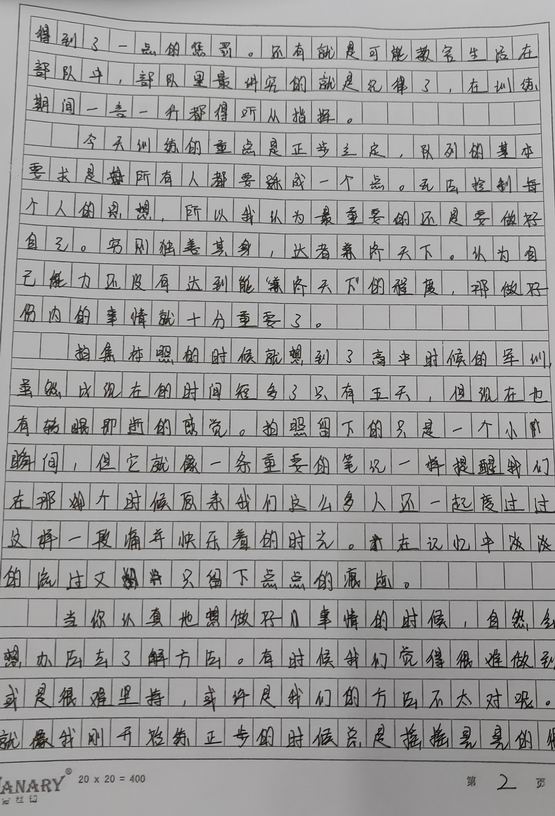 得到了一点的惩罚。还有就是可能教官生活在
部队中，部队里最讲究的就是纪律了，在训练
期间一言一行都得听从指挥。
今天训练的重点是正步立定，队列的基本
要求是每所有人都要踩成一个点。无法控制每
个人的思想，所以我认为最重要的还是要做好
自己。穷则独善其身，达者兼济天下。认为自
己能力还没有达到能"兼济天下"的程度，那做好
份内的事情就十分重要了。
拍集体照的时候就想到了高中时候的军训，
虽然比现在的时间短多了只有五天，但现在也
有转眼即逝的感觉。拍照留下的只是一个小
瞬间，但它就像一条重要的笔记一样提醒我们
在那个时候原来我们这么多人还一起度过过
这样一段痛并快乐着的时光。在记忆中淡淡
的流过又只留下点点的痕迹。
当你认真地想做好事情的时候，自然会
想办法去了解方法。有时候我们觉得很难做到
或是很难坚持，或许是我们的方法不太对呢。
就像我刚开始练正步的时候总是摇摇晃晃的很
MANARY® 20 x 20 = 400 第 2 页